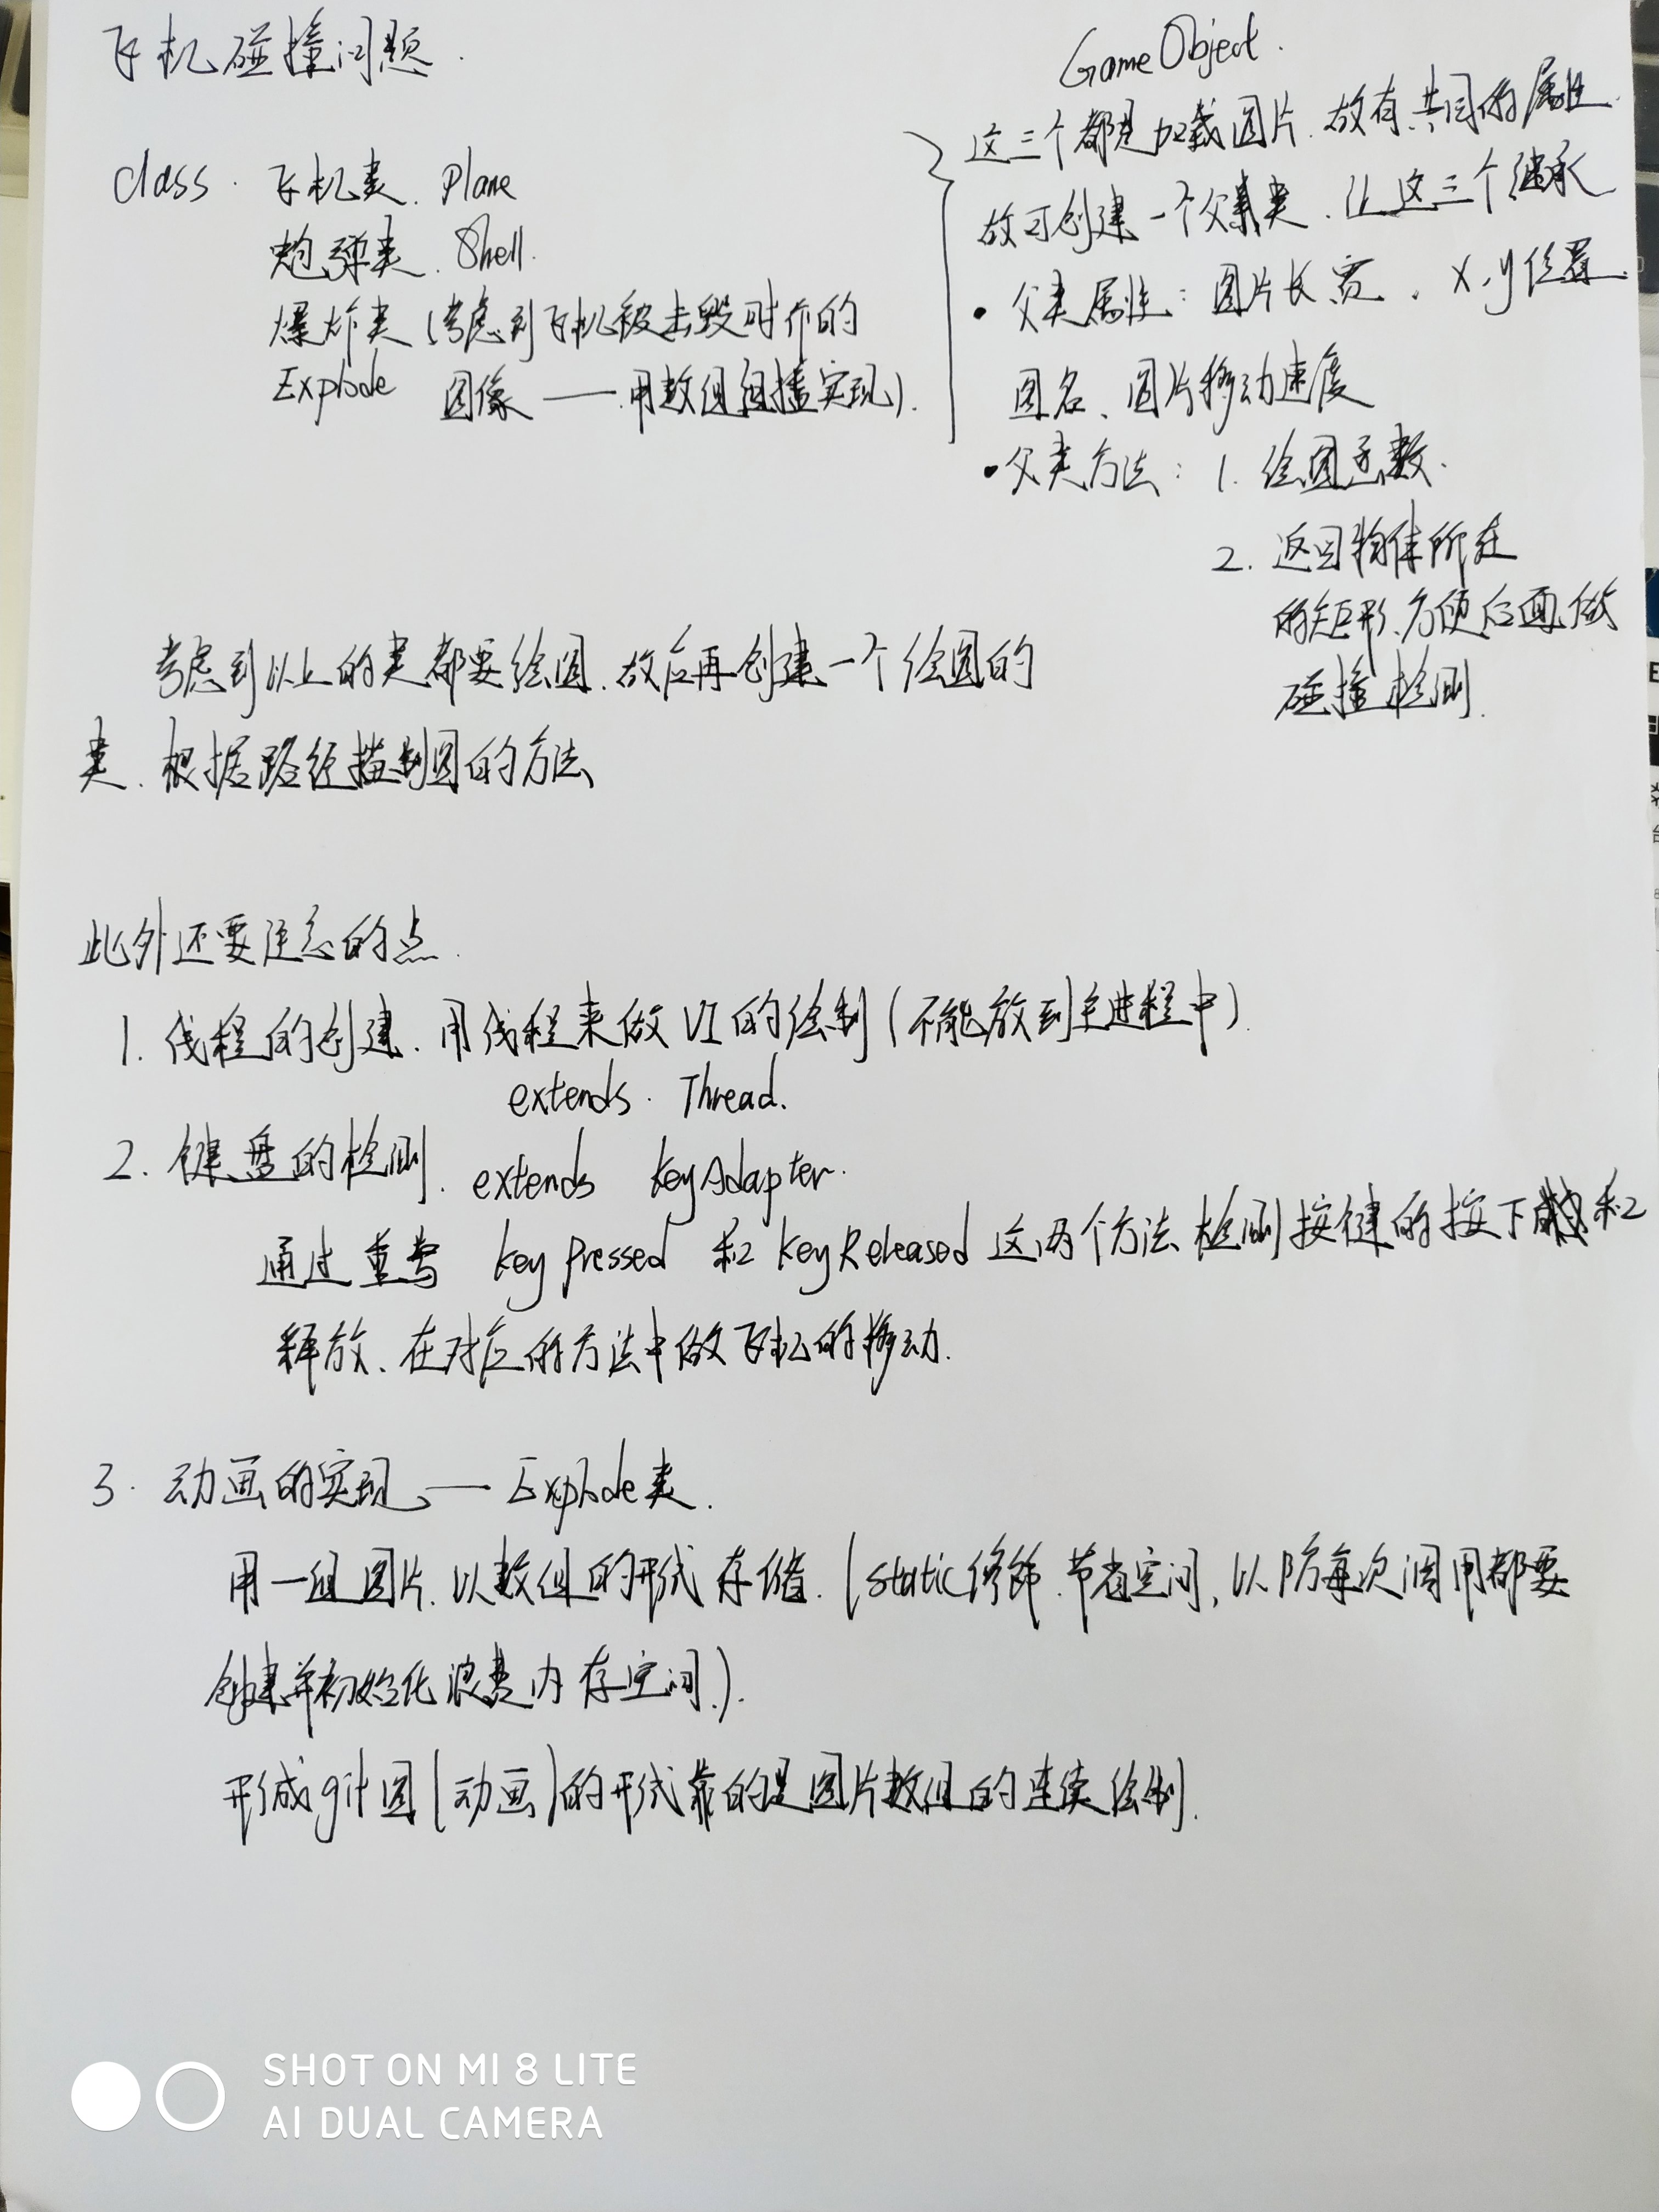 飞机碰撞问题.
class. 飞机类. Plane
炮弹类. Shell.
爆炸类 (考虑到飞机被击毁时作的
Explode 图像 —— 用数组直接实现).
GameObject.
这三个都是加载图片. 故有共同的属性.
故可创建一个父类. 让这三个继承
• 父类属性: 图片长宽、x,y位置.
图名、图片移动速度
• 父类方法: 1. 绘图函数.
2. 返回物体所在
的矩形、方便后面做
碰撞检测.
考虑到以上的类都要绘图. 故应再创建一个绘图的
类. 根据路径描制图的方法、
此外还要注意的点.
1. 线程的创建. 用线程来做UI的绘制(不能放到主进程中).
extends. Thread.
2. 键盘的检测. extends keyAdapter.
通过重写 keyPressed 和 keyReleased 这两个方法检测按键的按下和
释放、在对应的方法中做飞机的移动.
3. 动画的实现 —— Explode类.
用一组图片. 以数组的形式存储. (static修饰. 节省空间, 以防每次调用都要
创建并初始化浪费内存空间.).
形成gif图(动画)的形式靠的是图片数组的连续绘制.
SHOT ON MI 8 LITE
AI DUAL CAMERA